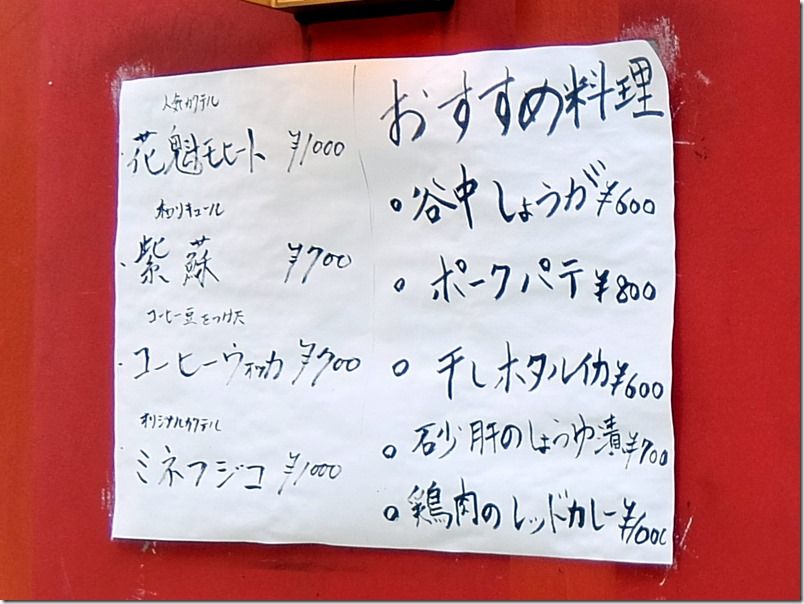 人気カクテル
・花魁モヒート ¥1000
和リキュール
・紫蘇 ¥700
コーヒー豆をつけた
・コーヒーウォッカ ¥700
オリジナルカクテル
・ミネフジコ ¥1000
おすすめ料理
○谷中しょうが¥600
○ポークパテ¥800
○干しホタルイカ¥600
○砂肝のしょうゆ漬¥700
○鶏肉のレッドカレー¥1000